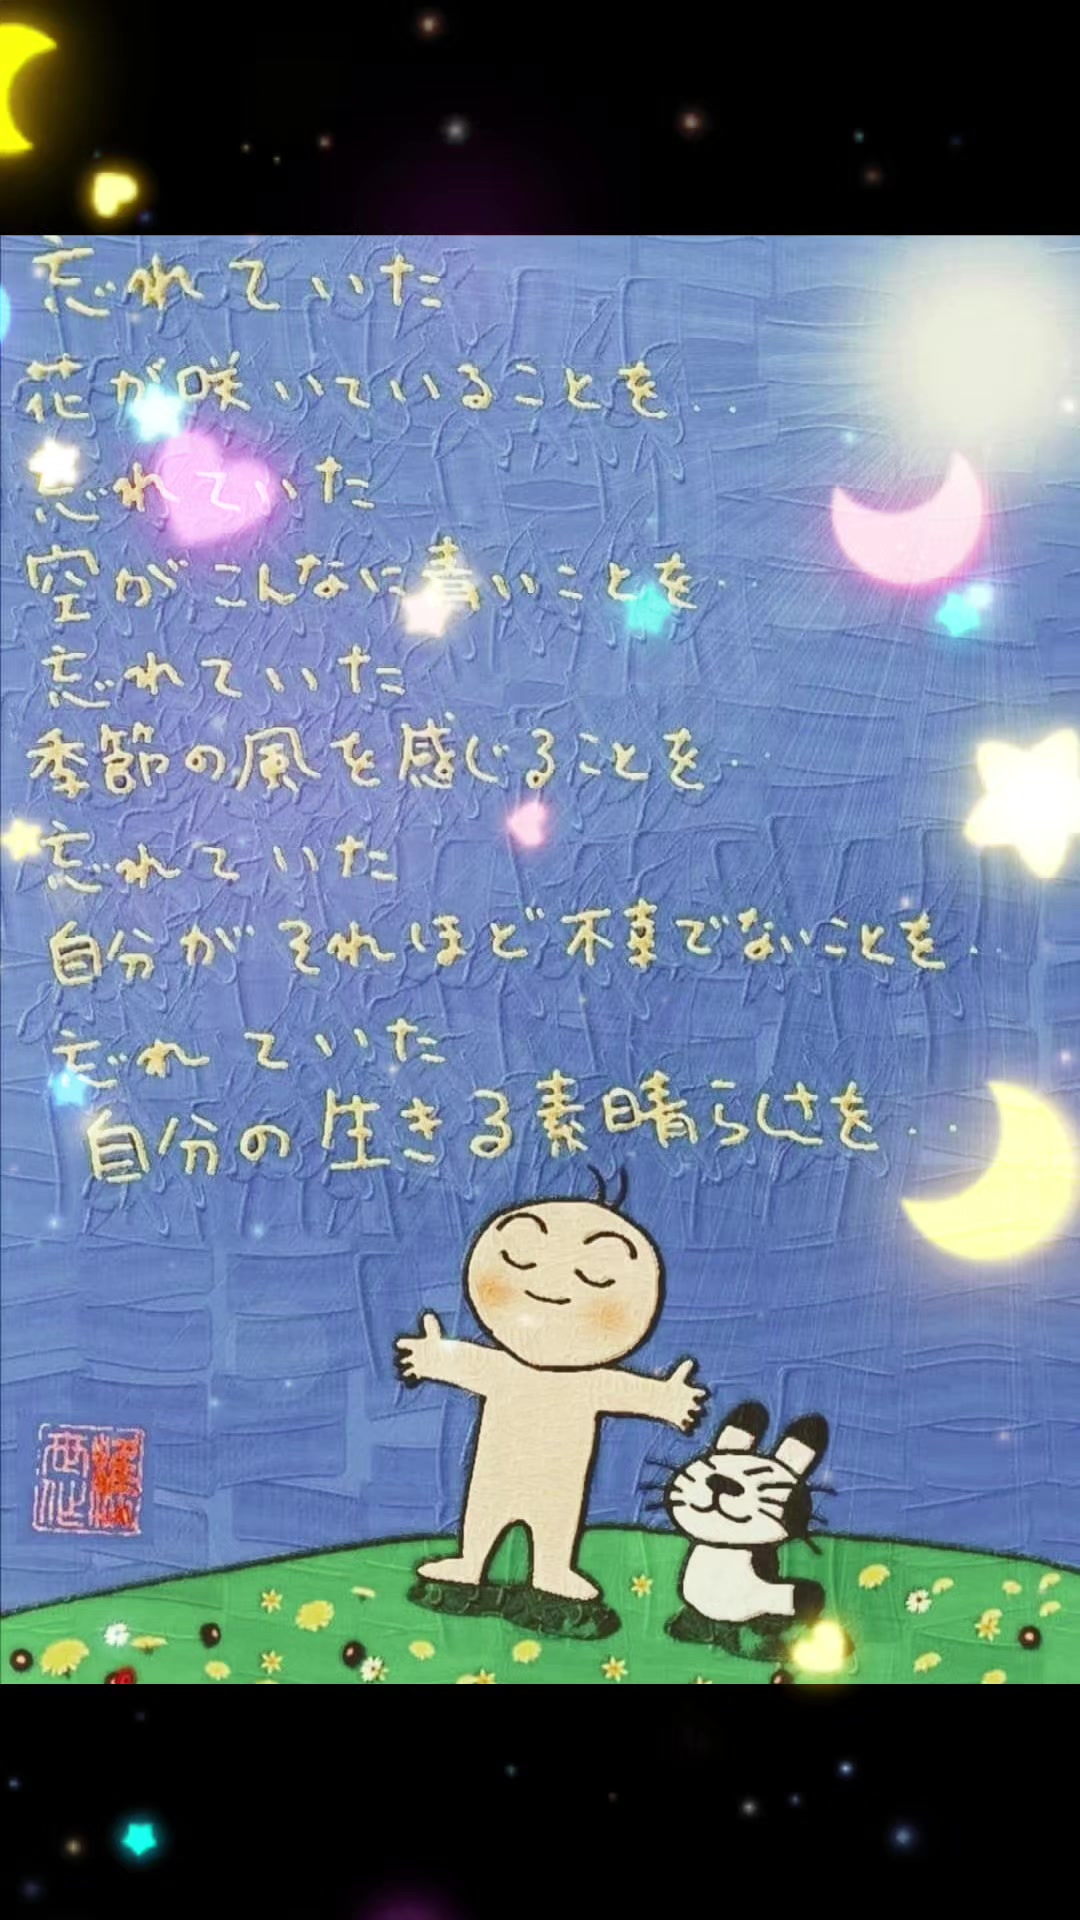 忘れていた
花が咲いていることを..
忘れていた
空がこんなに青いことを..
忘れていた
季節の風を感じることを..
忘れていた
自分がそれほど不幸でないことを..
忘れていた
自分の生きる素晴らしさを...